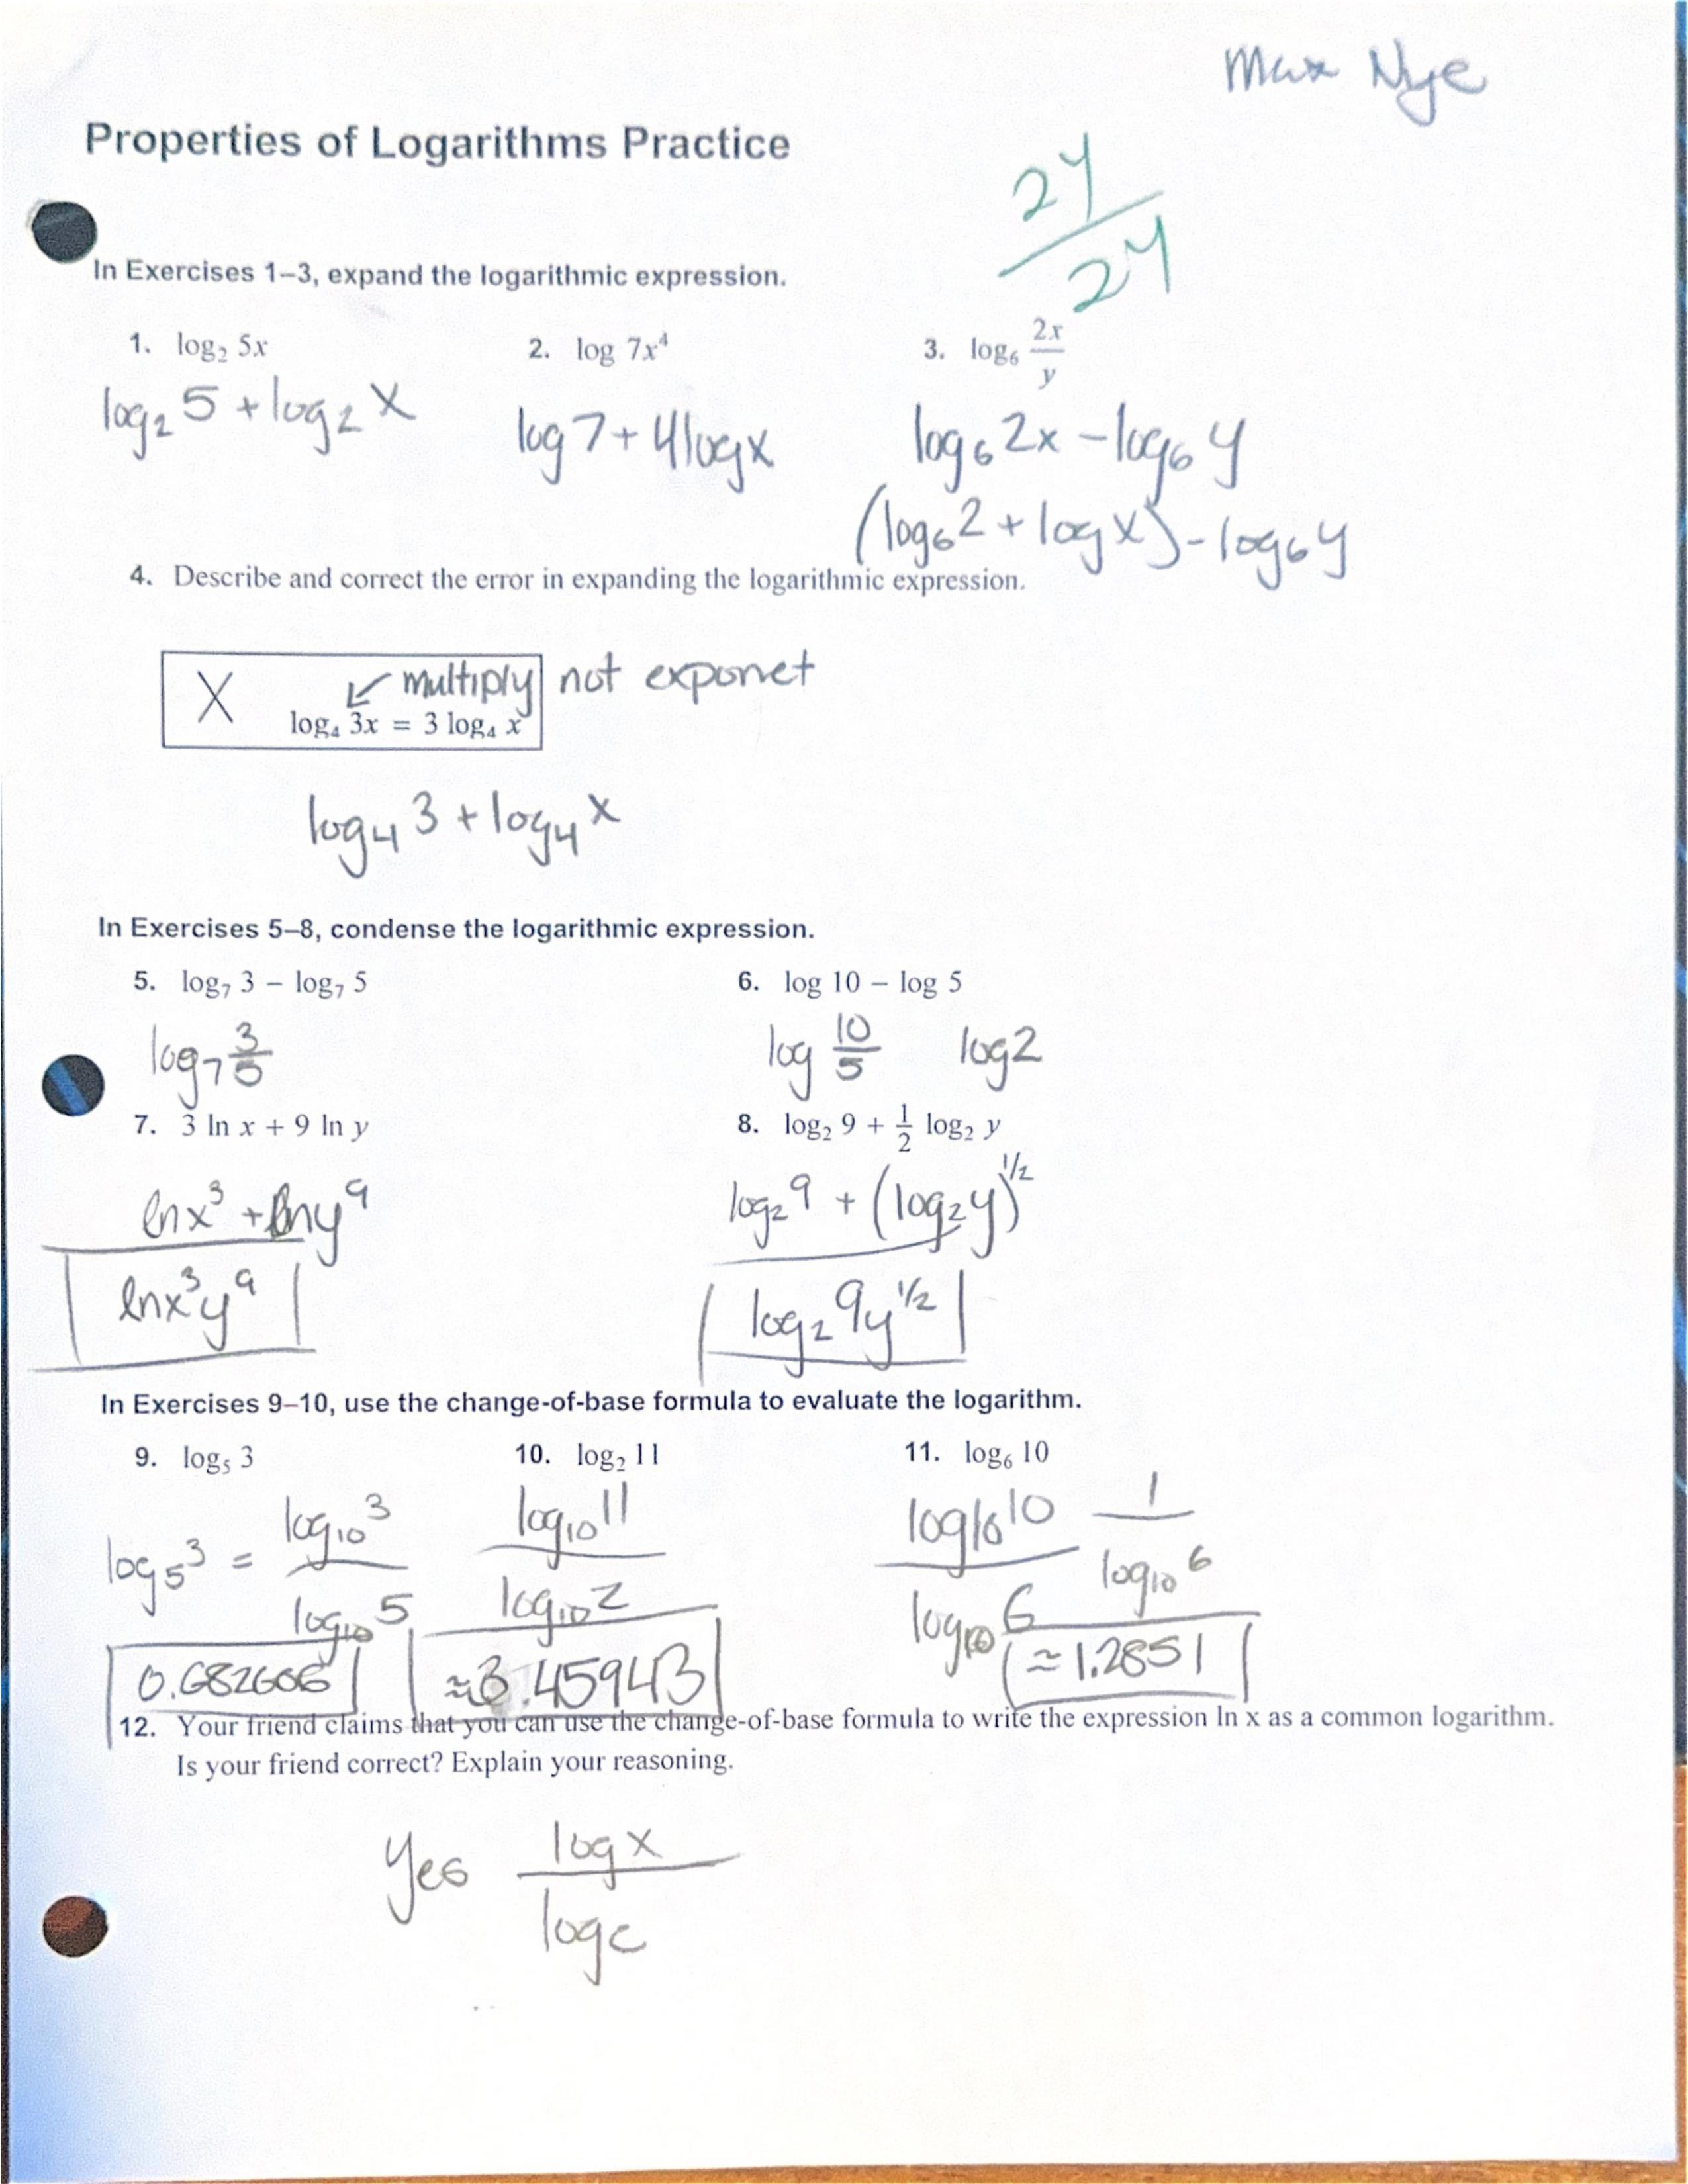 Max Nye
Properties of Logarithms Practice
24/24
In Exercises 1–3, expand the logarithmic expression.
1. log₂ 5x 2. log 7x⁴ 3. log₆ 2x/y
log₂ 5 + log₂ x log 7 + 4 log x log₆ 2x – log₆ y
(log₆ 2 + log x) – log₆ y
4. Describe and correct the error in expanding the logarithmic expression.
X ↙ multiply not exponet
log₄ 3x = 3 log₄ x
log₄ 3 + log₄ x
In Exercises 5–8, condense the logarithmic expression.
5. log₇ 3 – log₇ 5 6. log 10 – log 5
log₇ 3/5 log 10/5 log 2
7. 3 ln x + 9 ln y 8. log₂ 9 + 1/2 log₂ y
ln x³ + ln y⁹ log₂ 9 + (log₂ y)^1/2
ln x³y⁹ log₂ 9y^1/2
In Exercises 9–10, use the change-of-base formula to evaluate the logarithm.
9. log₅ 3 10. log₂ 11 11. log₆ 10
log₅ 3 = log₁₀ 3 / log₁₀ 5 log₁₀ 11 / log₁₀ 2 log₁₀ 10 / log₁₀ 6 1 / log₁₀ 6
0.682606 ≈3.45943 ≈1.2851
12. Your friend claims that you can use the change-of-base formula to write the expression ln x as a common logarithm.
Is your friend correct? Explain your reasoning.
Yes log x / log e